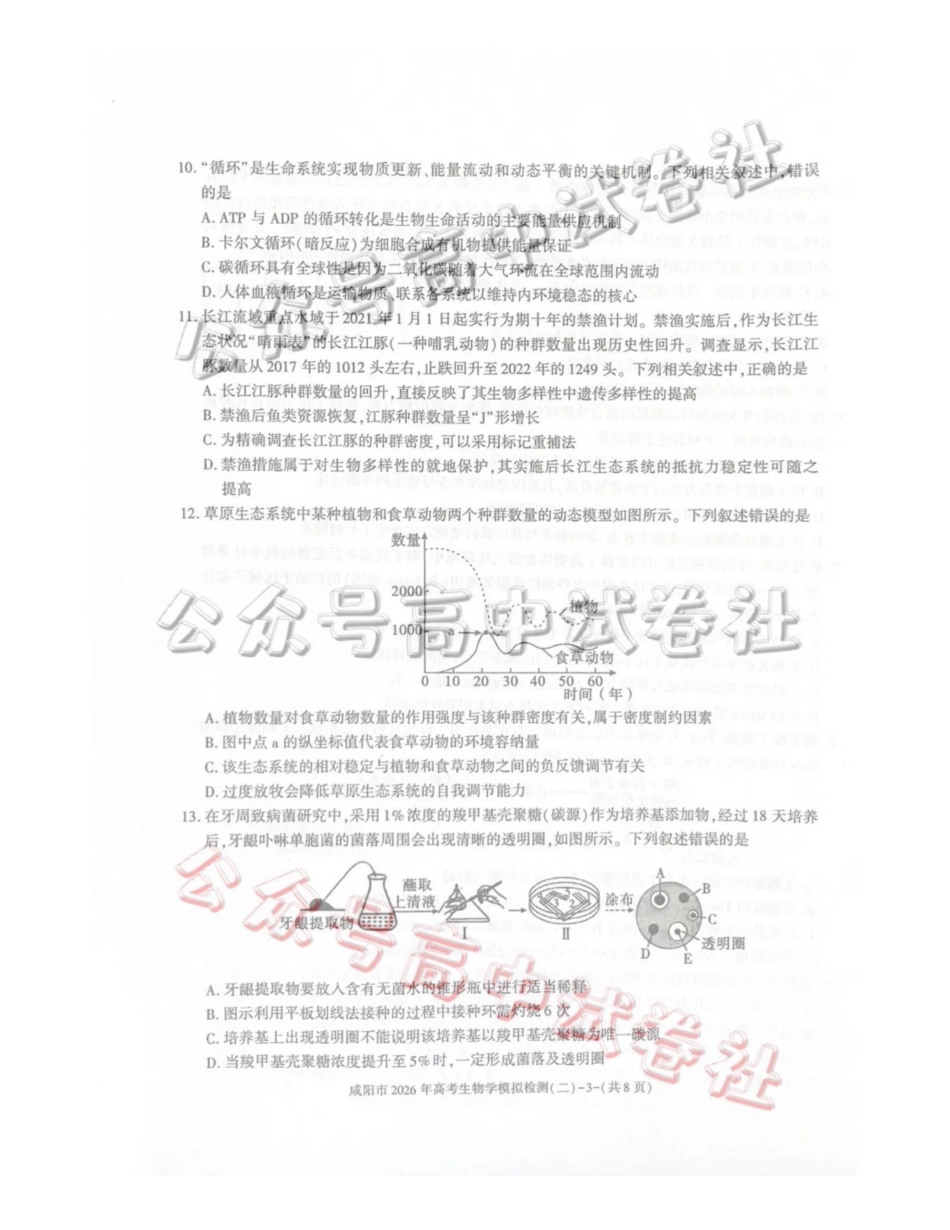 10. “循环”是生命系统实现物质更新、能量流动和动态平衡的关键机制。下列相关叙述中,错误
的是
A. ATP 与 ADP 的循环转化是生物生命活动的主要能量供应机制
B. 卡尔文循环(暗反应)为细胞合成有机物提供能量保证
C. 碳循环具有全球性是因为二氧化碳随着大气环流在全球范围内流动
D. 人体血液循环是运输物质、联系各系统以维持内环境稳态的核心
11. 长江流域重点水域于 2021 年 1 月 1 日起实行为期十年的禁渔计划。禁渔实施后,作为长江生
态状况“晴雨表”的长江江豚(一种哺乳动物)的种群数量出现历史性回升。调查显示,长江江
豚数量从 2017 年的 1012 头左右,止跌回升至 2022 年的 1249 头。下列相关叙述中,正确的是
A. 长江江豚种群数量的回升,直接反映了其生物多样性中遗传多样性的提高
B. 禁渔后鱼类资源恢复,江豚种群数量呈“J”形增长
C. 为精确调查长江江豚的种群密度,可以采用标记重捕法
D. 禁渔措施属于对生物多样性的就地保护,其实施后长江生态系统的抵抗力稳定性可随之
提高
12. 草原生态系统中某种植物和食草动物两个种群数量的动态模型如图所示。下列叙述错误的是
数量
2000
植物
1000
a
食草动物
0 10 20 30 40 50 60
时间(年)
公众号高中试卷社
公众号高中试卷社
A. 植物数量对食草动物数量的作用强度与该种群密度有关,属于密度制约因素
B. 图中点 a 的纵坐标值代表食草动物的环境容纳量
C. 该生态系统的相对稳定与植物和食草动物之间的负反馈调节有关
D. 过度放牧会降低草原生态系统的自我调节能力
13. 在牙周致病菌研究中,采用 1% 浓度的羧甲基壳聚糖(碳源)作为培养基添加物,经过 18 天培养
后,牙龈卟啉单胞菌的菌落周围会出现清晰的透明圈,如图所示。下列叙述错误的是
牙龈提取物
蘸取
上清液
I
3 2 5
II
涂布
A
B
C
D
E
透明圈
公众号高中试卷社
A. 牙龈提取物要放入含有无菌水的锥形瓶中进行适当稀释
B. 图示利用平板划线法接种的过程中接种环需灼烧 6 次
C. 培养基上出现透明圈不能说明该培养基以羧甲基壳聚糖为唯一碳源
D. 当羧甲基壳聚糖浓度提升至 5% 时,一定形成菌落及透明圈
咸阳市 2026 年高考生物学模拟检测(二)-3-(共 8 页)